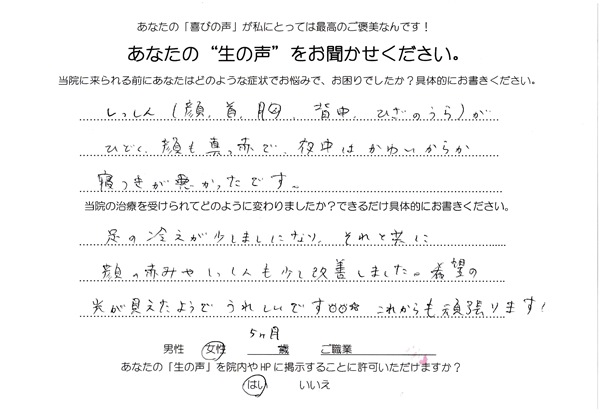 あなたの「喜びの声」が私にとっては最高のご褒美なんです！
あなたの“生の声”をお聞かせください。
当院に来られる前にあなたはどのような症状でお悩みで、お困りでしたか？具体的にお書きください。
しっしん（顔、首、胸、背中、ひざのうら）が
ひどく、顔も真っ赤で、夜中はかゆいからか
寝つきが悪かったです。
当院の治療を受けられてどのように変わりましたか？できるだけ具体的にお書きください。
足の冷えが少しましになり、それと共に
顔の赤みやしっしんも少し改善しました。希望の
光が見えたようでうれしいです☆ これからも頑張ります！
5ヶ月
男性 女性 歳 ご職業
あなたの「生の声」を院内やHPに掲示することに許可いただけますか？
はい いいえ